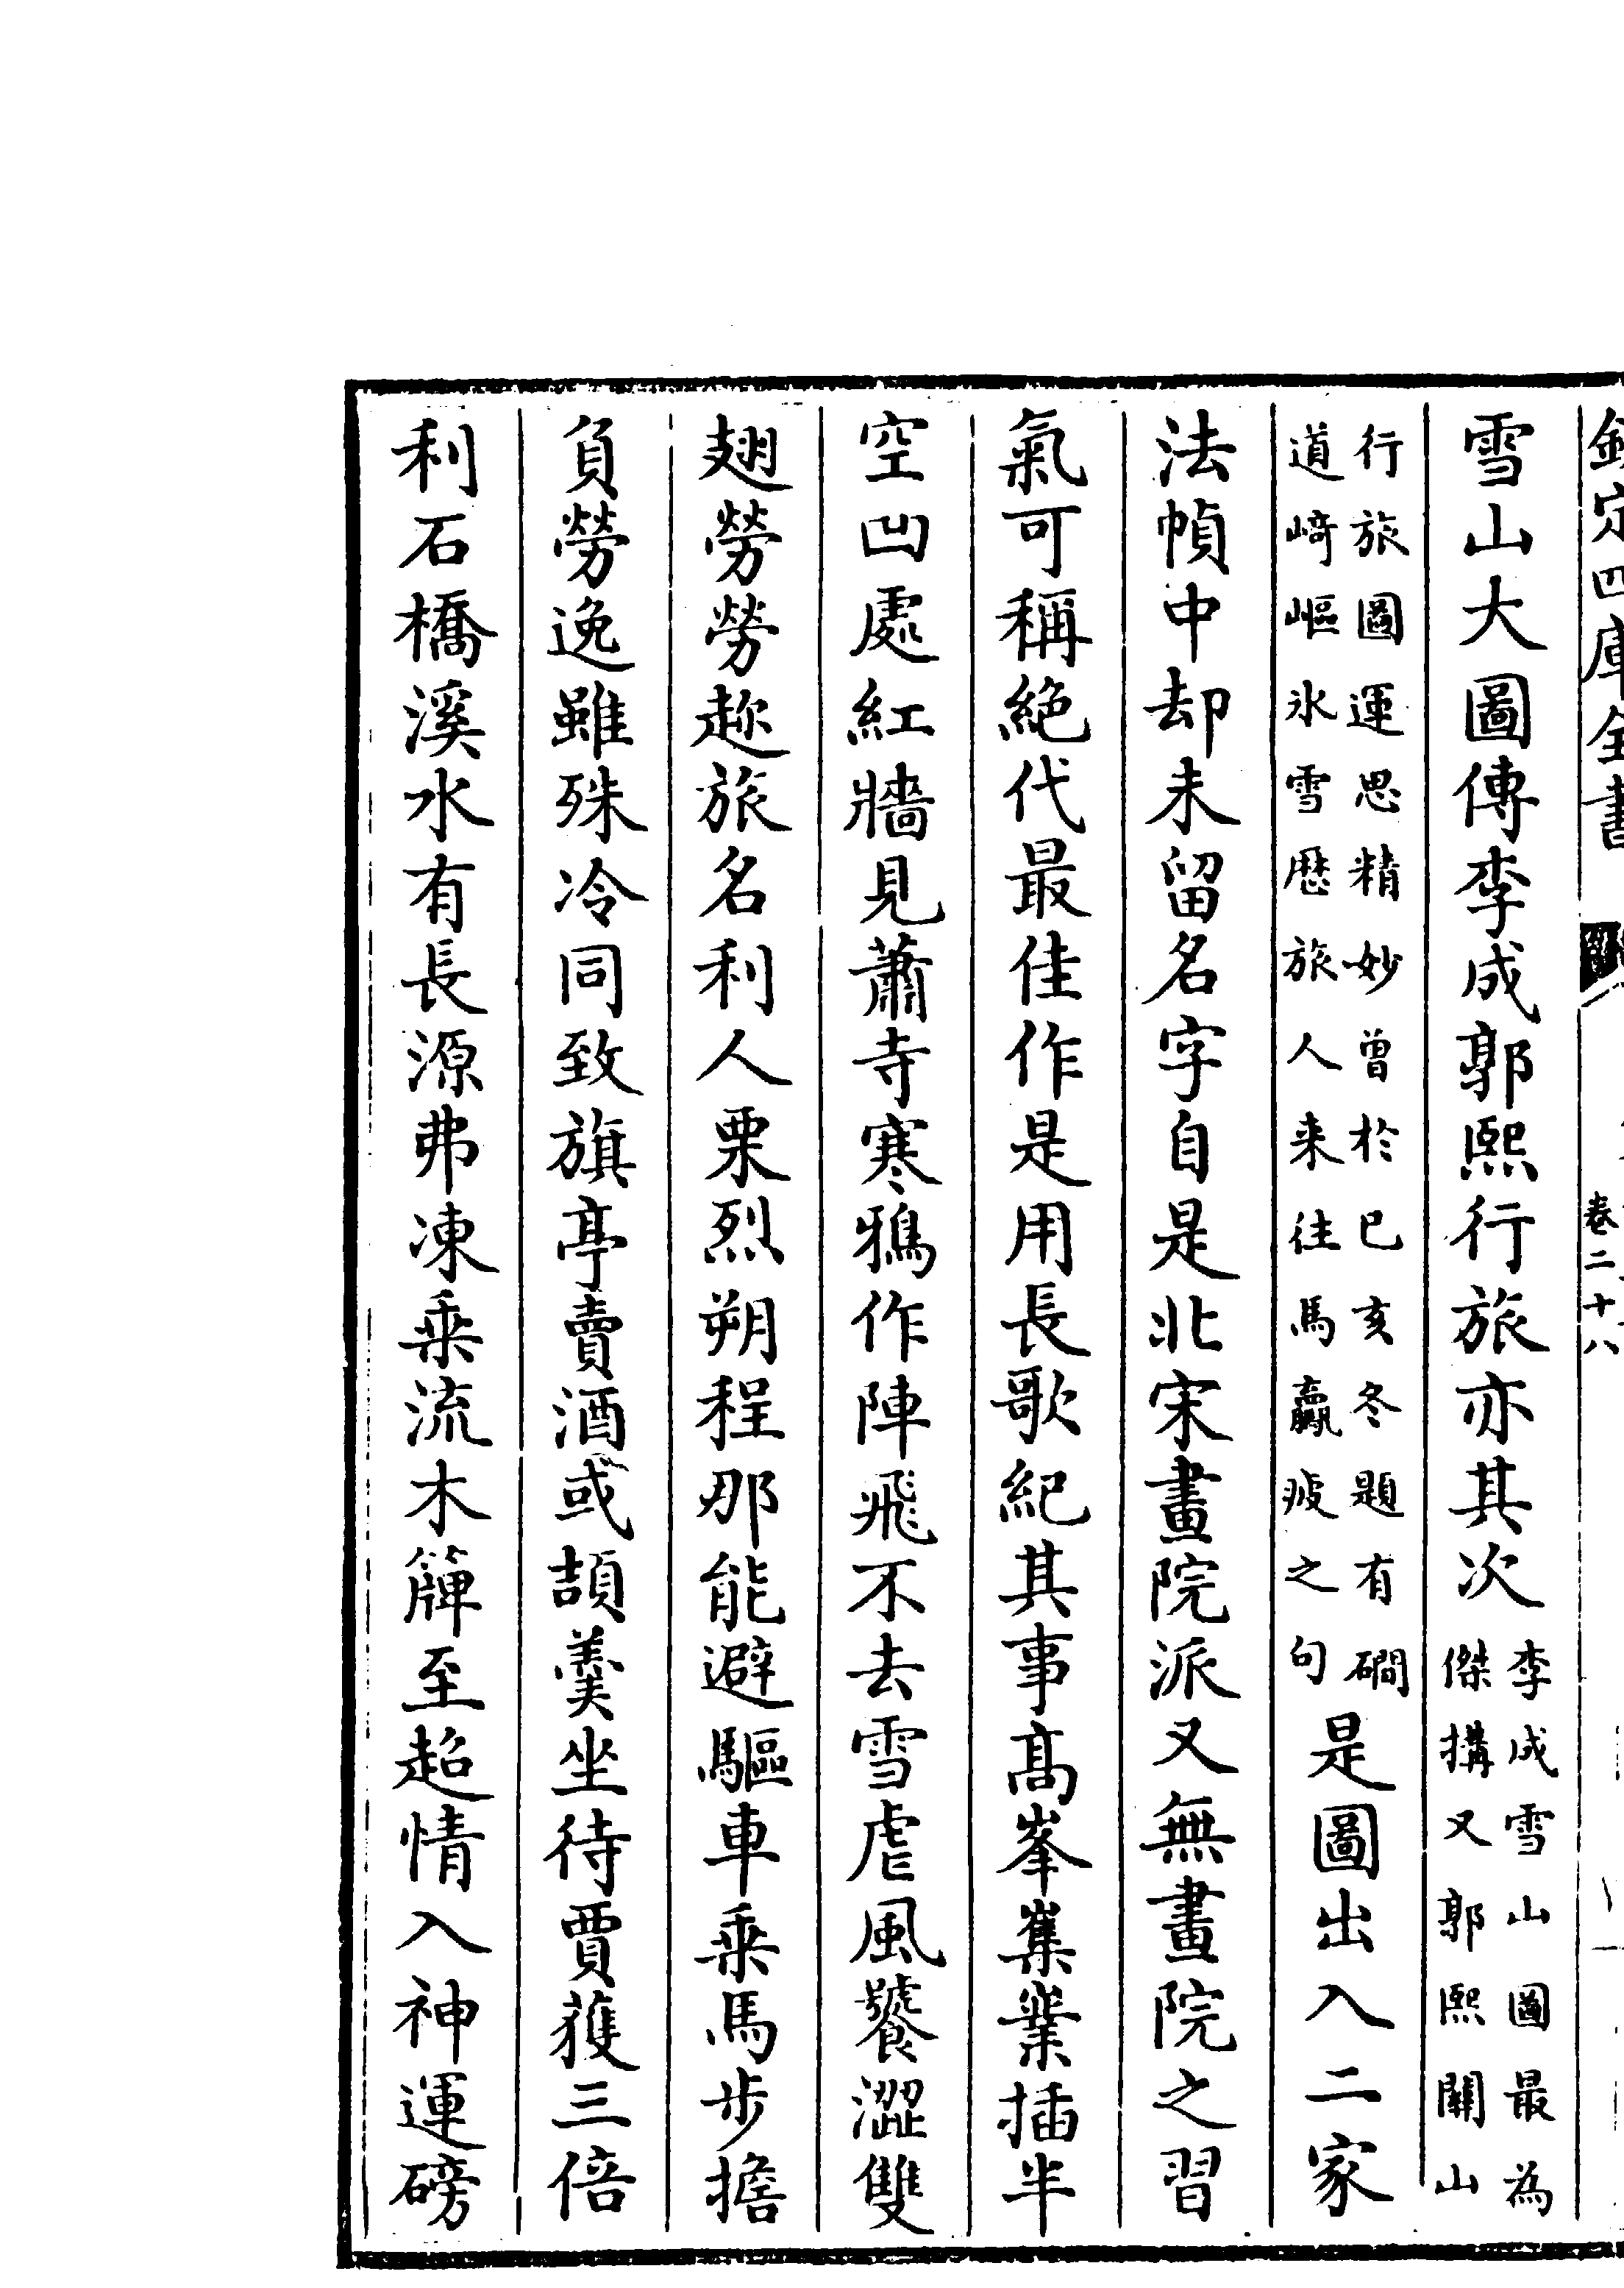 欽定四庫全書
卷二十八
雪山大圖傳李成郭熙行旅亦其次李成雪山圖最為傑搆又郭熙關山
行旅圖運思精妙曾於己亥冬題有磵道崎嶇氷雪歴旅人来往馬羸疲之句是圖出入二家
法幀中却未留名字自是北宋畫院派又無畫院之習
氣可稱絶代最佳作是用長歌紀其事髙峯嶲嶪插半
空凹處紅牆見蕭寺寒鴉作陣飛不去雪虐風饕澀雙
翅勞勞趂旅名利人栗烈朔程那能避驅車乗馬步擔
負勞逸雖殊冷同致旗亭賣酒或頡羹坐待賈獲三倍
利石橋溪水有長源弗凍乗流木簰至超情入神運磅